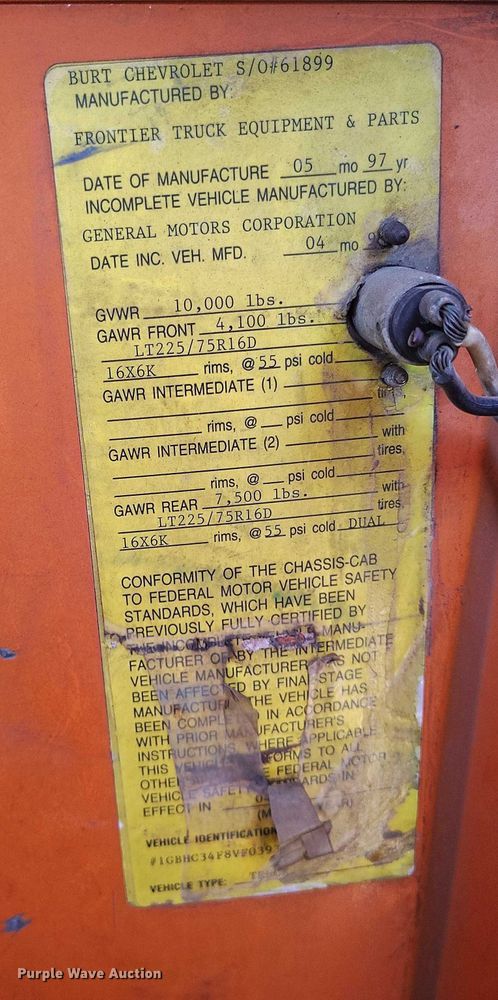 BURT CHEVROLET S/O#61899
MANUFACTURED BY:
FRONTIER TRUCK EQUIPMENT & PARTS
DATE OF MANUFACTURE 05 mo 97 yr
INCOMPLETE VEHICLE MANUFACTURED BY:
GENERAL MOTORS CORPORATION
DATE INC. VEH. MFD. 04 mo
GVWR 10,000 lbs.
GAWR FRONT 4,100 lbs.
LT225/75R16D
16X6K rims, @ 55 psi cold
GAWR INTERMEDIATE (1)
rims, @ psi cold
GAWR INTERMEDIATE (2) with
tires,
rims, @ psi cold
GAWR REAR 7,500 lbs. with
LT225/75R16D tires,
16X6K rims, @ 55 psi cold DUAL
CONFORMITY OF THE CHASSIS-CAB
TO FEDERAL MOTOR VEHICLE SAFETY
STANDARDS, WHICH HAVE BEEN
PREVIOUSLY FULLY CERTIFIED BY
THE MANU-
FACTURER OR BY THE INTERMEDIATE
VEHICLE MANUFACTURER NOT
BEEN AFFECTED BY FINAL STAGE
THE VEHICLE HAS
BEEN IN ACCORDANCE
WITH PRIOR MANUFACTURER'S
INSTRUCTIONS WHERE APPLICABLE
THIS TO ALL
FEDERAL MOTOR
VEHICLE IN
EFFECT IN
VEHICLE IDENTIFICATION
VEHICLE TYPE:
Purple Wave Auction